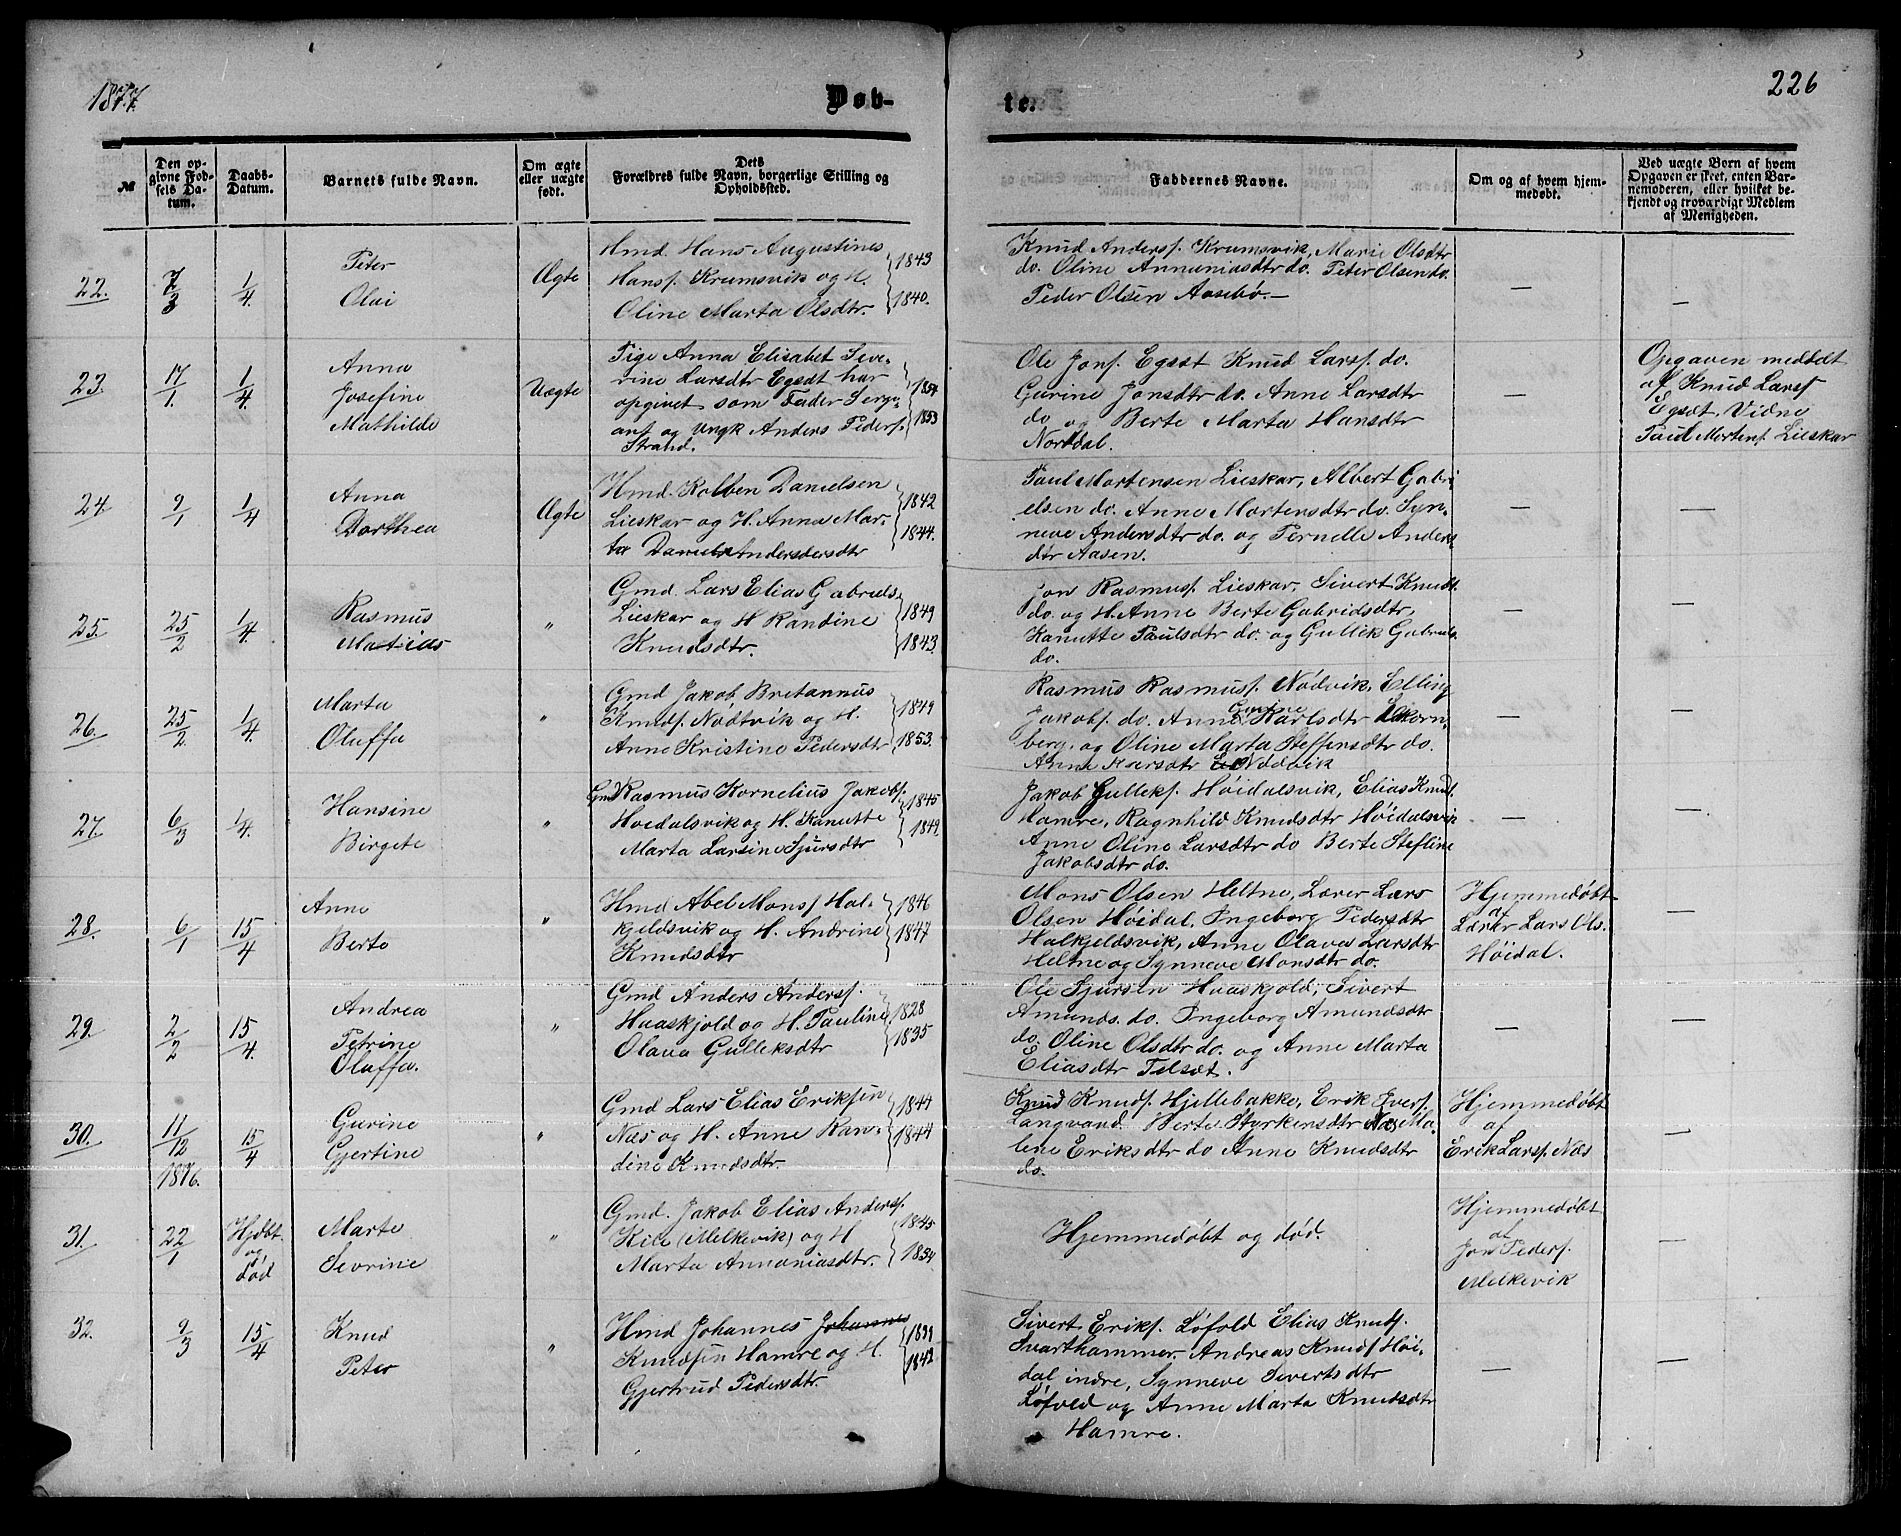 1877.
Døb-
te.
226
№
Den op-
givne Fød-
sels Da-
tum.
Daabs-
Datum.
Barnets fulde Navn.
Om ægte
eller uægte
født.
Dets
Forældres fulde Navn, borgerlige Stilling og
Opholdssted.
Faddernes Navne.
Om og af hvem hjem-
medøbt.
Ved uægte Børn af hvem
Opgaven er skeet, enten Bar-
nemoderen, eller hvilket be-
kjendt og troværdigt Medlem
af Menigheden.
22.
7/3
1/4.
Peter
Olai
Ægte
Hmd. Hans Augustines
Hansf. Krumsvik og H.
Oline Marta Olsdtr.
1843
1840.
Knud Andersf. Krumsvik, Marie Olsdtr
do. Oline Annaniasdtr do. Peter Olsen do.
Peder Olsen Aasebø.—
—
—
23.
17/1.
1/4.
Anna
Josefine
Mathilde
Uægte
Pige Anna Elisabet Seve-
rine Larsdtr Egsæt har
opgivet som Fader Serge-
ant og Ungk Anders Peders.
Strand.
1854
1853
Ole Jonf. Egsæt Knud Larsf. do.
Gurine Jonsdtr do. Anne Larsdtr
do og Berte Marta Hansdtr
Norddal.
—
Opgaven meddelt
af Knud Larsf
Egsæt, Vidne
Paul Mortens. Lieskar
24
9/1
1/4
Anna
Dorthea
Ægte
Hmd. Kolben Danielsen
Lieskar og H. Anna Mar-
ta Andersdersdtr
1842
1844.
Paul Mortensen Lieskar, Albert Gabri
elsen do. Anne Mortensdtr do. Syn-
neve Andersdtr do. og Pernelle Anders
dtr Aasen.
—
—
25.
25/2
1/4.
Rasmus
Matias
"
Gmd. Lars Elias Gabriels.
Lieskar og H Randine
Knudsdtr.
1849
1843.
Jon Rasmusf. Lieskar, Sivert Knudt.
do. og H. Anne Berte Gabrielsdtr,
Kanutte Paulsdtr do. og Gullik Gabriels.
do.
—
—
26.
25/2
1/4
Marta
Oluffa
"
Gmd Jakob Bretannus
Knudf. Nodtvik og H.
Anne Kristine Pedersdtr
1849
1853.
Rasmus Rasmusf. Nodvik, Elling
Jakobf. do. Anne Gurine Karlsdtr Ekorn-
berg. og Oline Marta Steffensdtr do.
Anne Larsdtr Nodvik
—
—
27.
6/3
1/4.
Hansine
Birgete
"
Gmd Rasmus Kornelius Jakobf.
Høidalsvik og H. Kanutte
Marta Larsine Sjursdtr
1845
1849.
Jakob Gullekf. Høidalsvik, Elias Knud
Hamre, Ragnhild Knudsdtr Høidalsvik
Anne Oline Larsdtr do Berte Stefline
Jakobsdtr do.
—
—
28.
6/1
15/4
Anne
Berte
"
Hmd Abel Monsf Hal-
kjeldsvik og H. Andrine
Knudsdtr
1846
1847
Mons Olsen Heltne, Lærer Lars
Olsen Høidal, Ingeborg Pedersdtr
Halkjeldsvik, Anne Olava Larsdtr
Heltne og Synneve Monsdtr do.
Hjemmedøbt
af
Lærer Lars Ols.
Høidal.
—
29.
2/2
15/4.
Andrea
Petrine
Oluffa.
"
Gmd Anders Andersf.
Huaskjold og H. Pauline
Olava Gulleksdtr
1828
1835
Ole Sjursen Huaskjold, Sivert
Amunds. do. Ingeborg Amundsdtr
do. Oline Olsdtr do. og Anne Marta
Eliasdtr Tilset.
—
—
30.
11/12
1876.
15/4
Gurine
Gjertine
"
Gmd Lars Elias Eriksen
Næs og H. Anne Ran-
dine Knudsdtr.
1844
1844
Knud Knudf. Hjellebakke, Erik Iverf.
Langvand Berte Styrkersdtr Næs Ma-
lene Eriksdtr do Anne Knudsdtr
do.
Hjemmedøbt
af
Erik Larsf. Næs
—
31.
22/1
Hjdbt.
og
død
Marte
Sevrine
"
Gmd. Jakob Elias Andersf.
Kile (Melkevik) og H
Marta Annaniasdtr.
1845
1854
Hjemmedøbt og død.
Hjemmedøbt
af
Jon Pedersf.
Melkevik
—
32.
9/3
15/4
Knud
Peter
"
Hmd Johannes Johannes
Knudsen Hamre og H.
Gjertrud Pedersdtr.
1842
Sivert Erikf. Løfold Elias Knudf.
Svarthammer. Andreas Knudf Høi-
dal indre, Synneve Sivertsdtr
Løfold og Anne Marta Knudsdtr
Hamre.
—
—